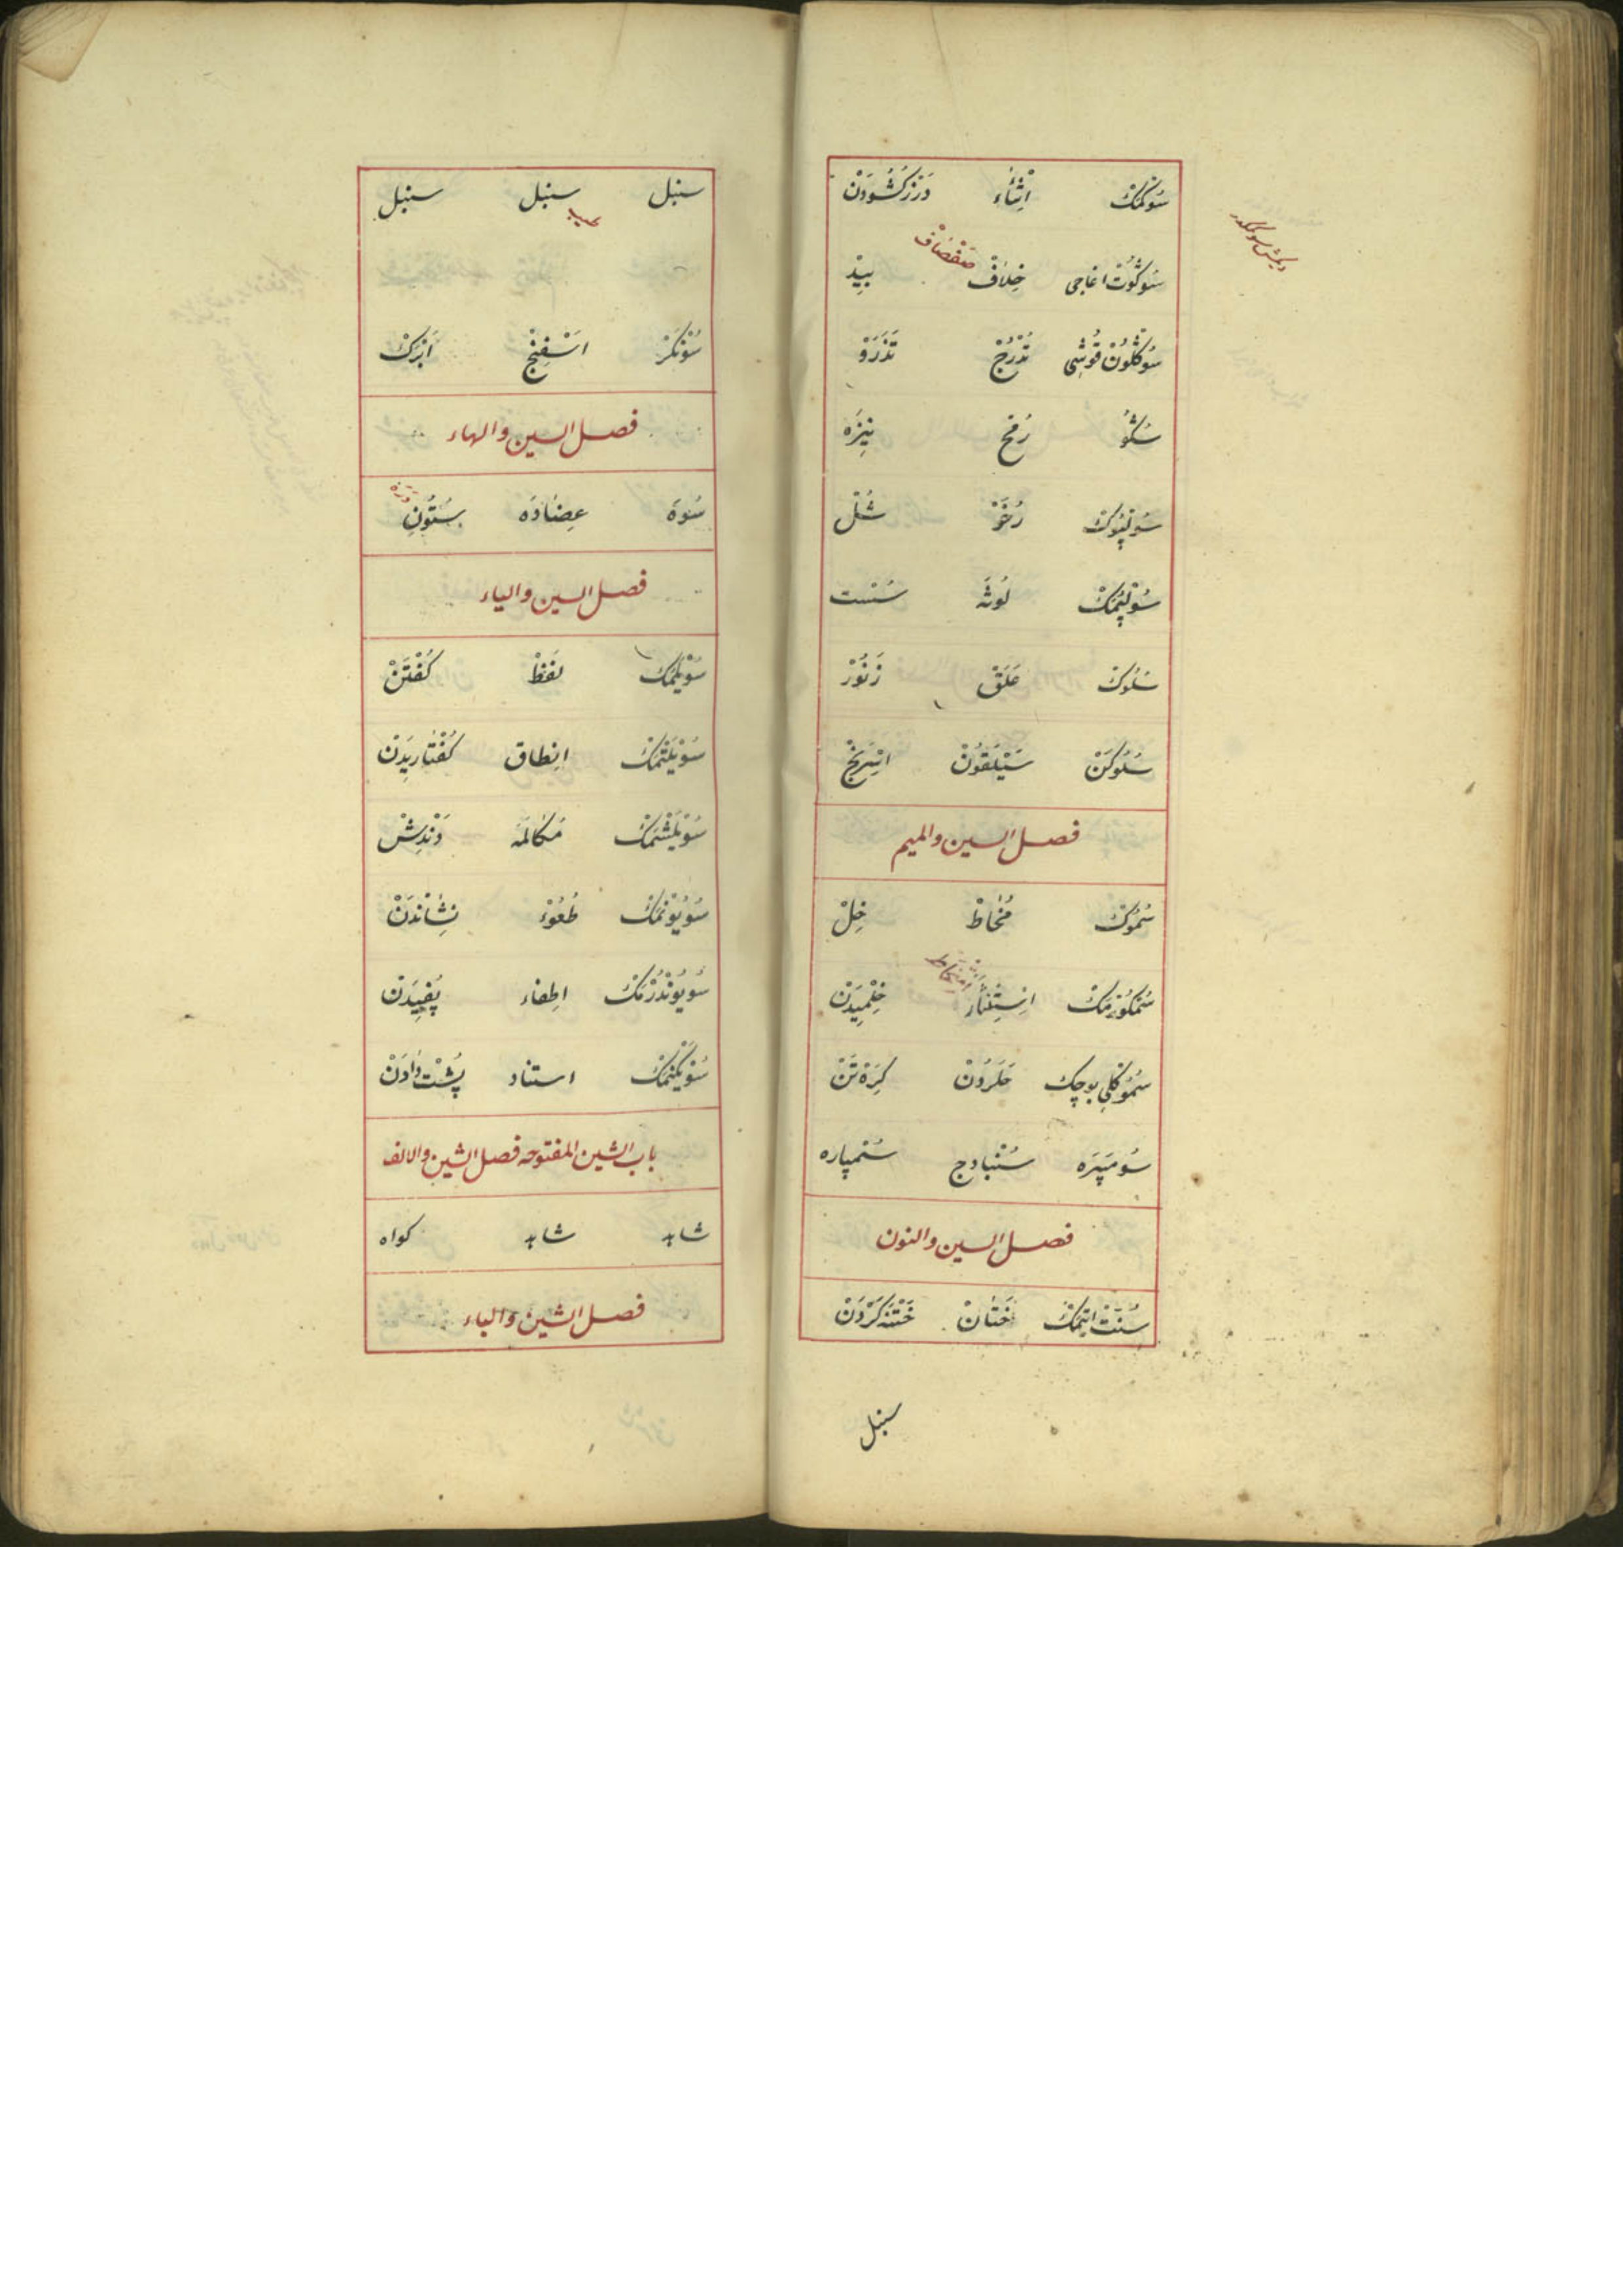 سُوكْمَكْ اِنْثَاءْ دَرْزْكُشُودَنْ
سُوكُوتْ اغاجى خِلَافْ صَفْصَافْ بِيدْ
سُوكْلُونْ قُوشِى تُدْرُجْ تَذَرْوْ
سُكُو رُمْحْ نِيزَه
سُولْپُوكْ رُخْوْ شُلْ
سُولْپُمَكْ لُوثَه سُسْت
سُلُوكْ عَلَقْ زَنُوْرْ
سُلُوكَنْ سَيْلَقُونْ اِسْرِنْجْ
فصل السين والميم
سُمُوكْ مُخَاطْ خِلْ
سُمْكُورْمَكْ اِسْتِنْثَارْ خِلْمِيدَنْ
سُمُوكْلِى بوجك حَلَزُونْ كِرَهْ تَنْ
سُومْپَرَه سُنْبَادج سُمْپاره
فصل السين والنون
سُنَّتْ اِتْمَكْ خَتَانْ خَتْنَه كَرْدَنْ
سنبل
سنبل سنبل سنبل
سُونْكَرْ اسْفِنْجْ اَبْرَكْ
فصل السين والهاء
سُوَه عِضَادَه سُتُونِ دَرَه
فصل السين والياء
سُويْلَمَكْ لَفْظْ كُفْتَنْ
سُويْلَتْمَكْ انِطاق كُفْتارِيدَنْ
سُويْلَشْمَكْ مُكَالَمَه دَنْدِشْ
سُويُونْمَكْ طُفُوْءْ نِشَانْدَنْ
سُويُونْدُرْمَكْ اطِفاء پُفِيدَنْ
سُويْكَنْمَكْ استناد پُشْت دَادَنْ
باب الشين المفتوحه فصل الشين والالف
شاهد شاهد كواه
فصل الشين والباء